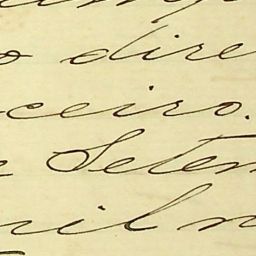 o dire
ceiro.
e Setem
mil n